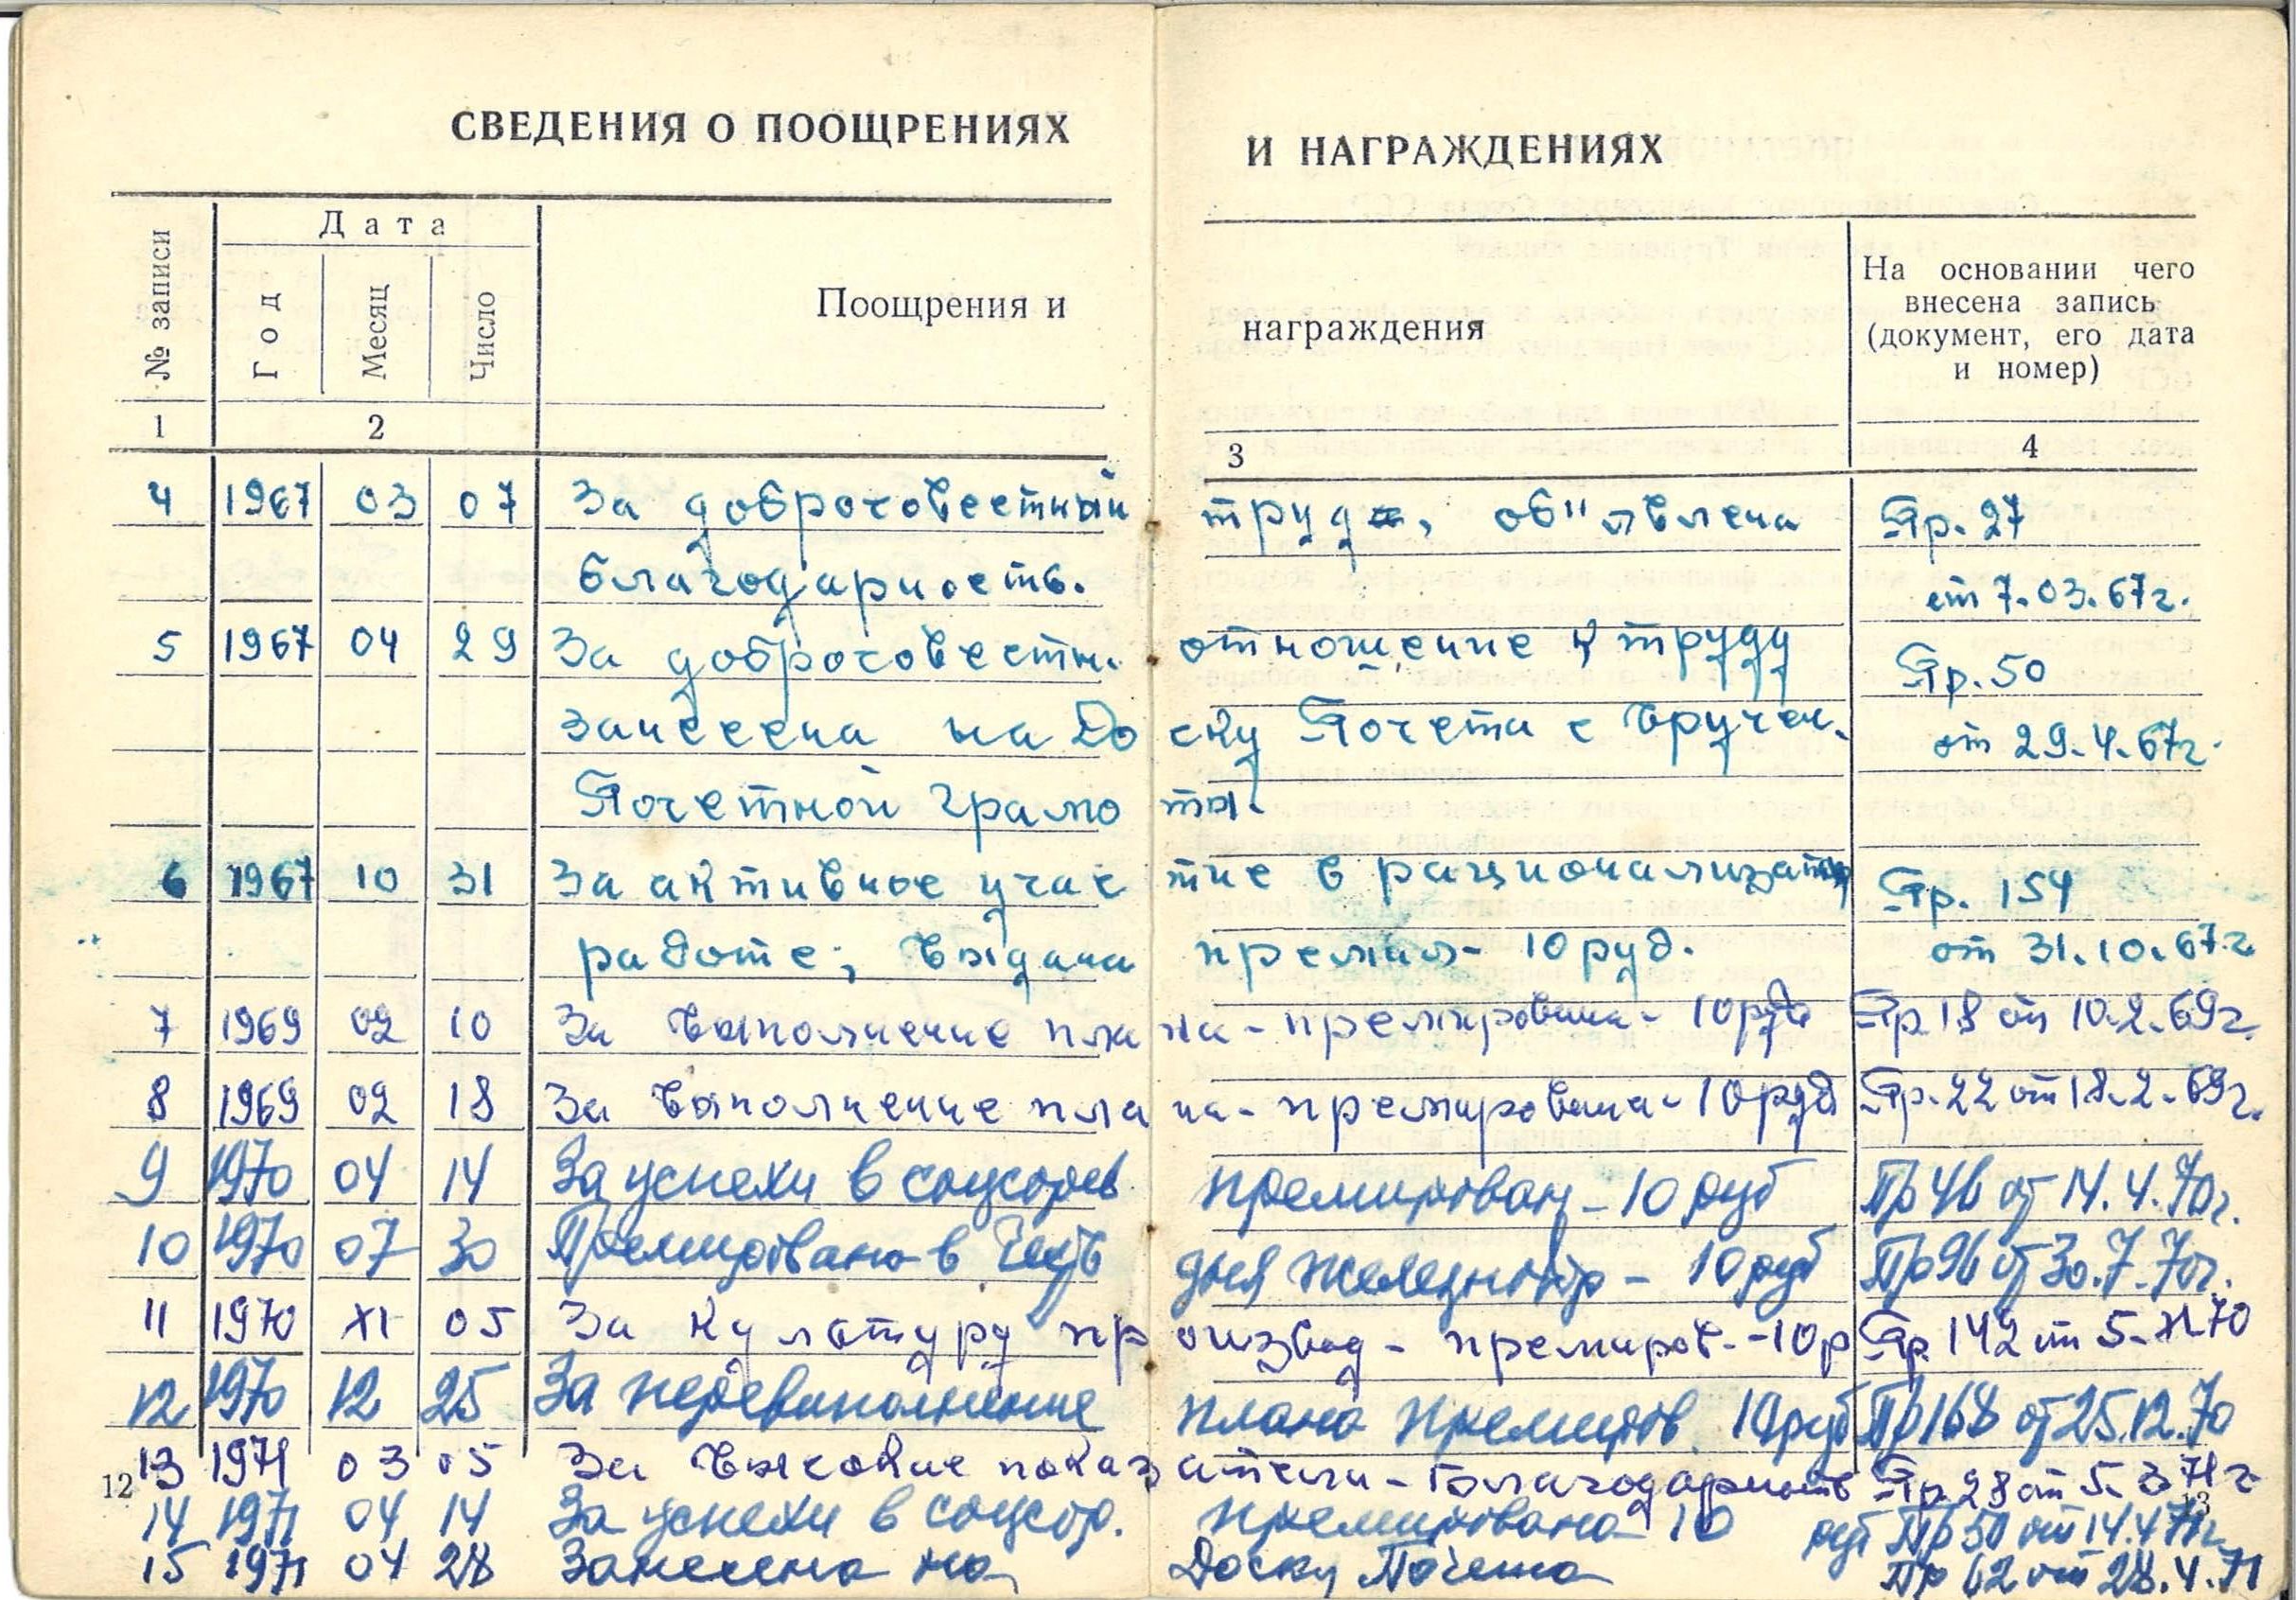 СВЕДЕНИЯ О ПООЩРЕНИЯХ И НАГРАЖДЕНИЯХ
№ записи
Дата
Год
Месяц
Число
Поощрения и награждения
На основании чего
внесена запись
(документ, его дата
и номер)
1 2 3 4
4 1967 03 07 За добросовестный труд, об"явлена Пр. 27
благодарность. от 7.03.67г.
5 1967 04 29 За добросовестн. отношение к труду Пр. 50
занесена на Доску Почета с вручен. от 29.4.67г.
Почетной грамоты.
6 1967 10 31 За активное участие в рационализатор Пр. 154
работе, выдана премия - 10 руб. от 31.10.67г
7 1969 02 10 За выполнение плана - премирована - 10 руб Пр 18 от 10.2.69г.
8 1969 02 18 За выполнение плана - премирована - 10 руб Пр. 22 от 18.2.69г.
9 1970 04 14 За успехи в соцсорев премирован - 10 руб Пр 46 от 14.4.70г.
10 1970 07 30 Премирована в честь дня железнодор - 10 руб Пр 96 от 30.7.70г.
11 1970 XI 05 За культуру производ - премиров. - 10р Пр. 142 от 5-XI-70
12 1970 12 25 За перевыполнение плана премиров. 10 руб Пр 168 от 25.12.70
13 1971 03 05 За высокие показатели - благодарность Пр. 28 от 5-3-71г
14 1971 04 14 За успехи в соцсор. премирована 10 руб Пр 50 от 14.4.71г
15 1971 04 28 Занесена на Доску Почета Пр 62 от 28.4.71
12
13